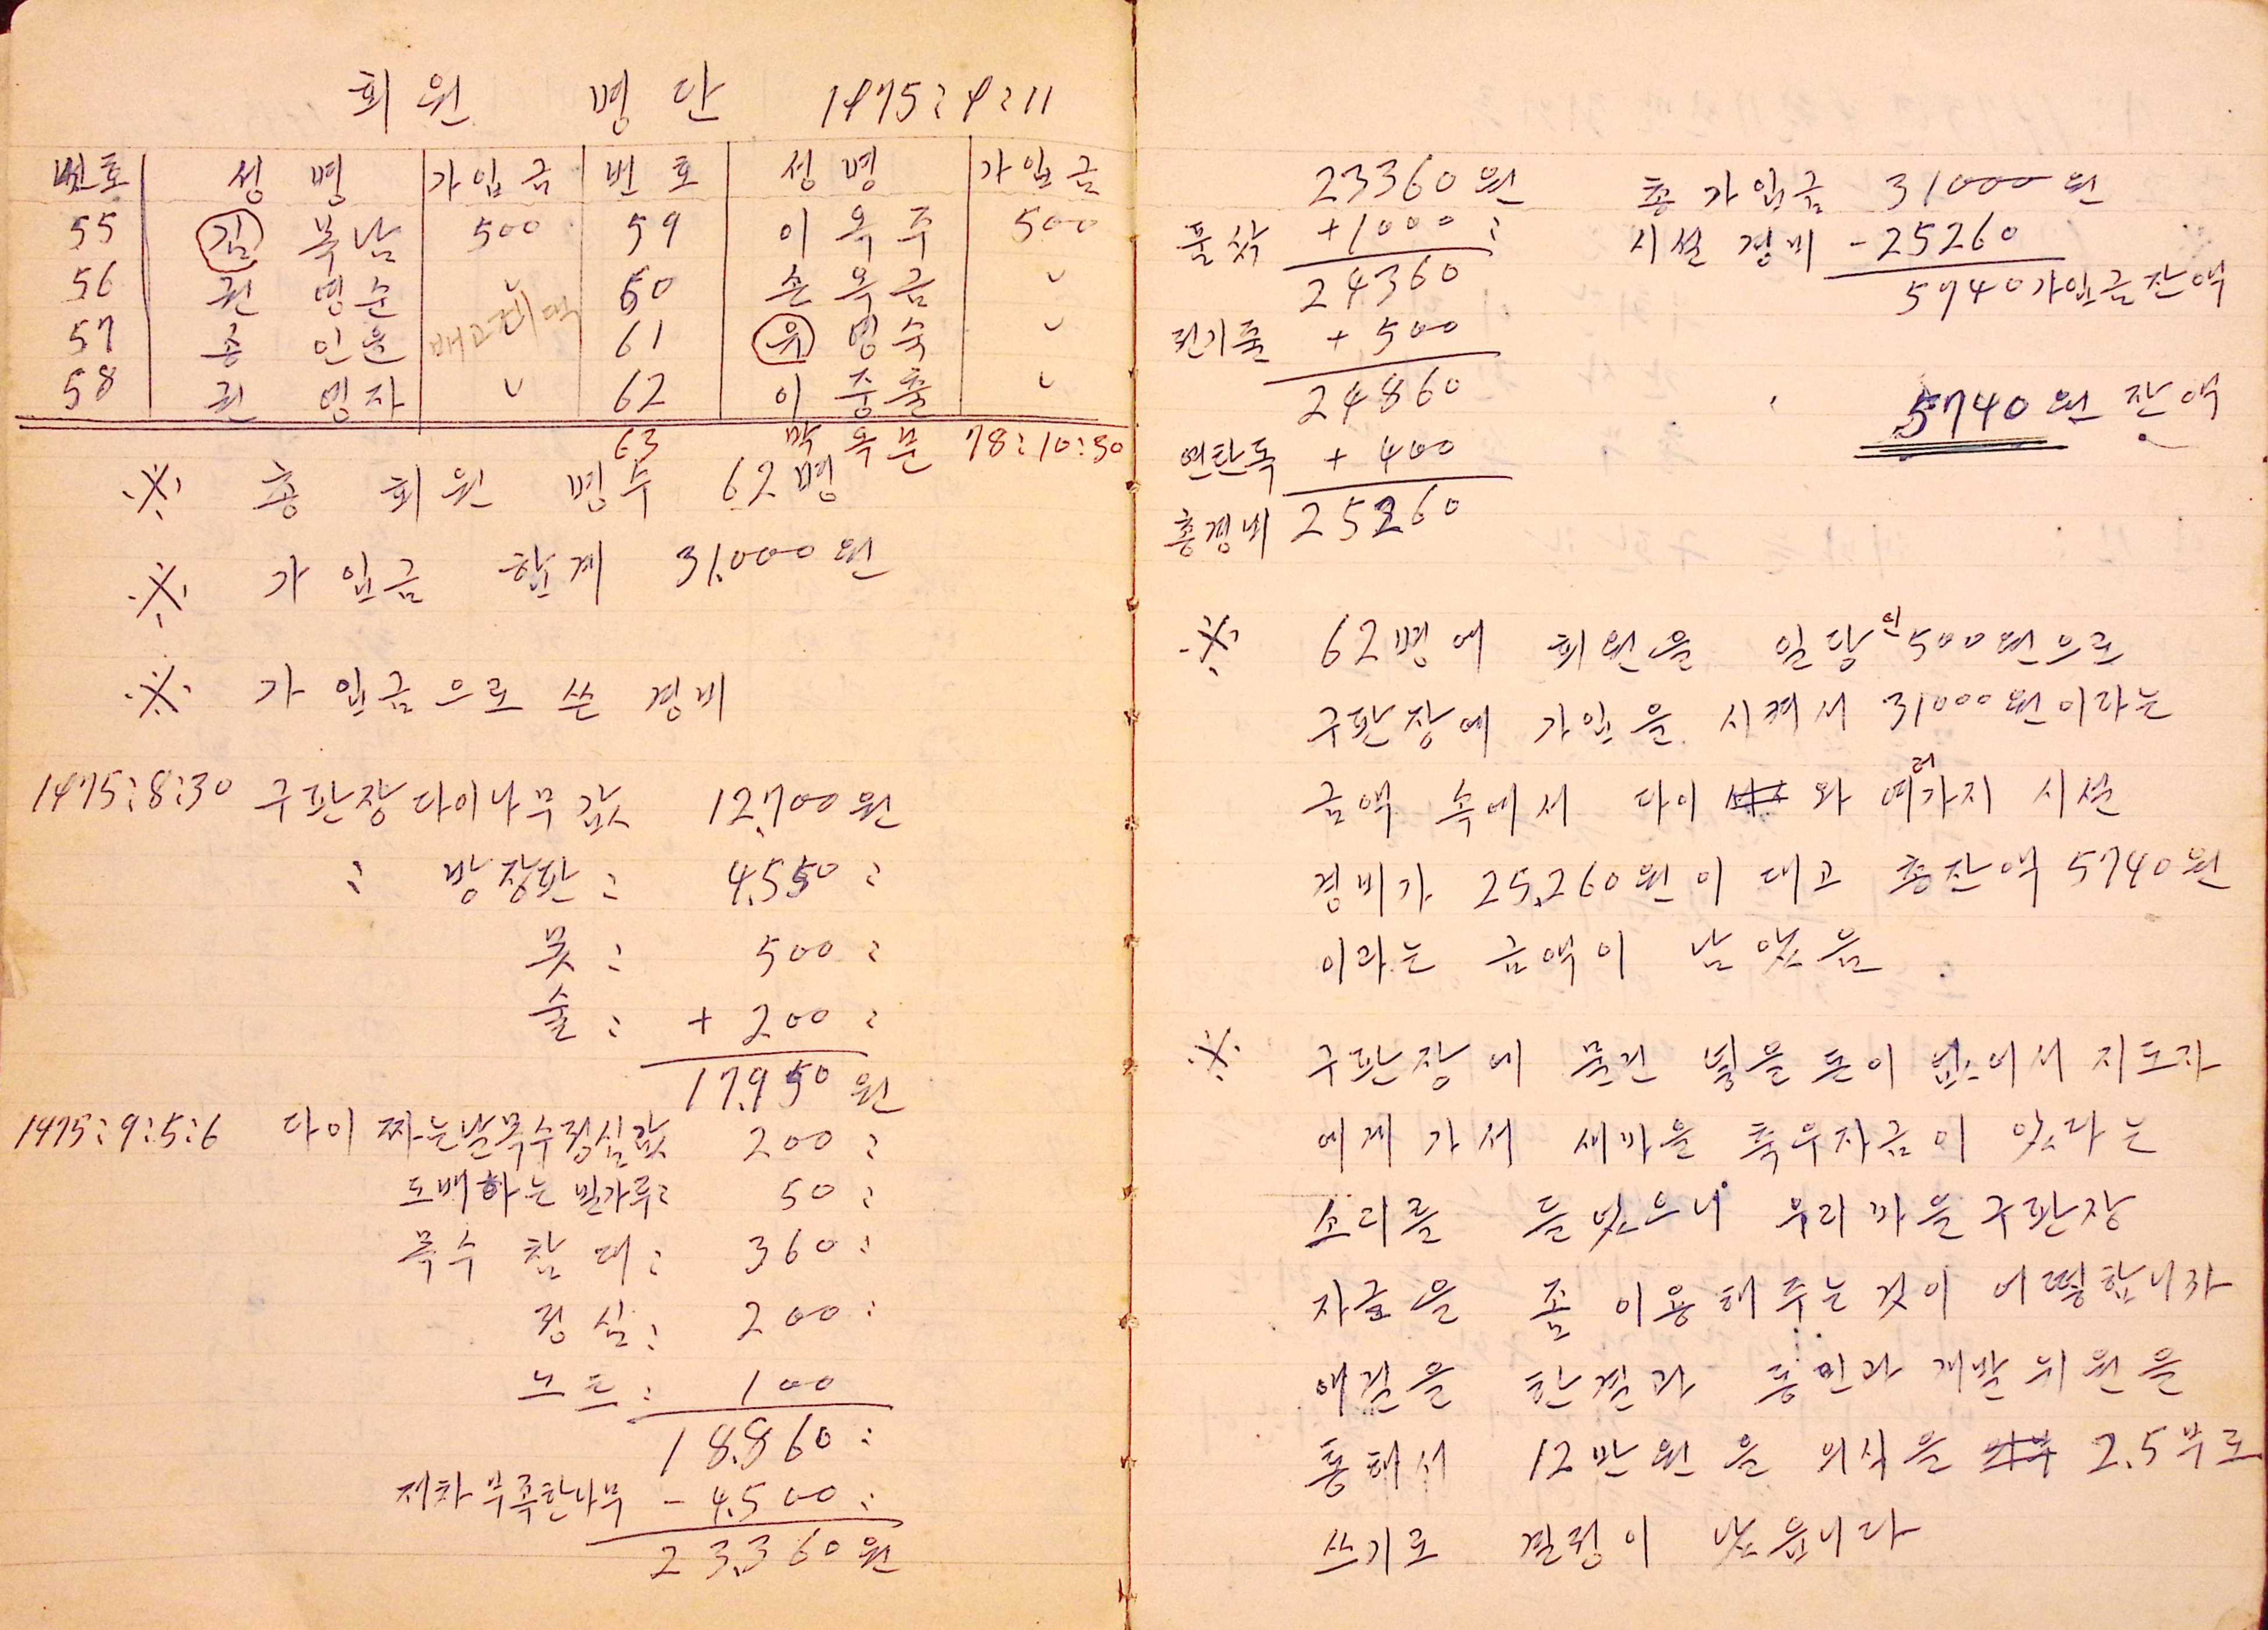 회원 명단 1975:4:11
번호 성명 가입금 번호 성명 가입금
55 김복남 500 59 이옥주 500
56 권영순 〃 60 손옥금 〃
57 인운 61 유영숙 〃
58 권영자 〃 62 이중출 〃
63 박옥분 78:10:30
※ 총 회원 명수 62명
※ 가입금 합계 31.000원
※ 가입금으로 쓴 경비
1975:8:30 구판장 다이나무 값 12.700원
: 방장판 : 4.550 :
못 : 500 :
술 : + 200 :
17.950원
1975:9:5:6 다이 짜는날 목수 정심값 200 :
도배하는 밀가루: 50 :
목수 참대 : 360 :
정심 : 200 :
노트 : 100
18.860 :
저차 부족한나무 - 4.500 :
23.360원
23360원
+1000 :
24360
전기줄 + 500
24860
연탄독 + 400
총경비 25260
총 가입금 31000원
시설 경비 -25260
5740 가입금 잔액
5740원 잔액
※ 62명에 회원을 일당인 500원으로
구판장에 가입을 시켜서 31000원이라는
금액 속에서 다이 와 여러가지 시설
경비가 25.260원이 대고 총잔액 5740원
이라는 금액이 남앗음
※ 구판장에 물건 띨을 돈이 없어서 지도자
에게 가서 새마을 특우자금이 잇다는
소리를 들엇으니 우리마을 구판장
자금을 좀 이용해 주는 것이 어떻합니까
애길을 한결과 동민과 개발위원을
통해서 12만원을 의식을 2.5부로
쓰기로 결정이 낫읍니다